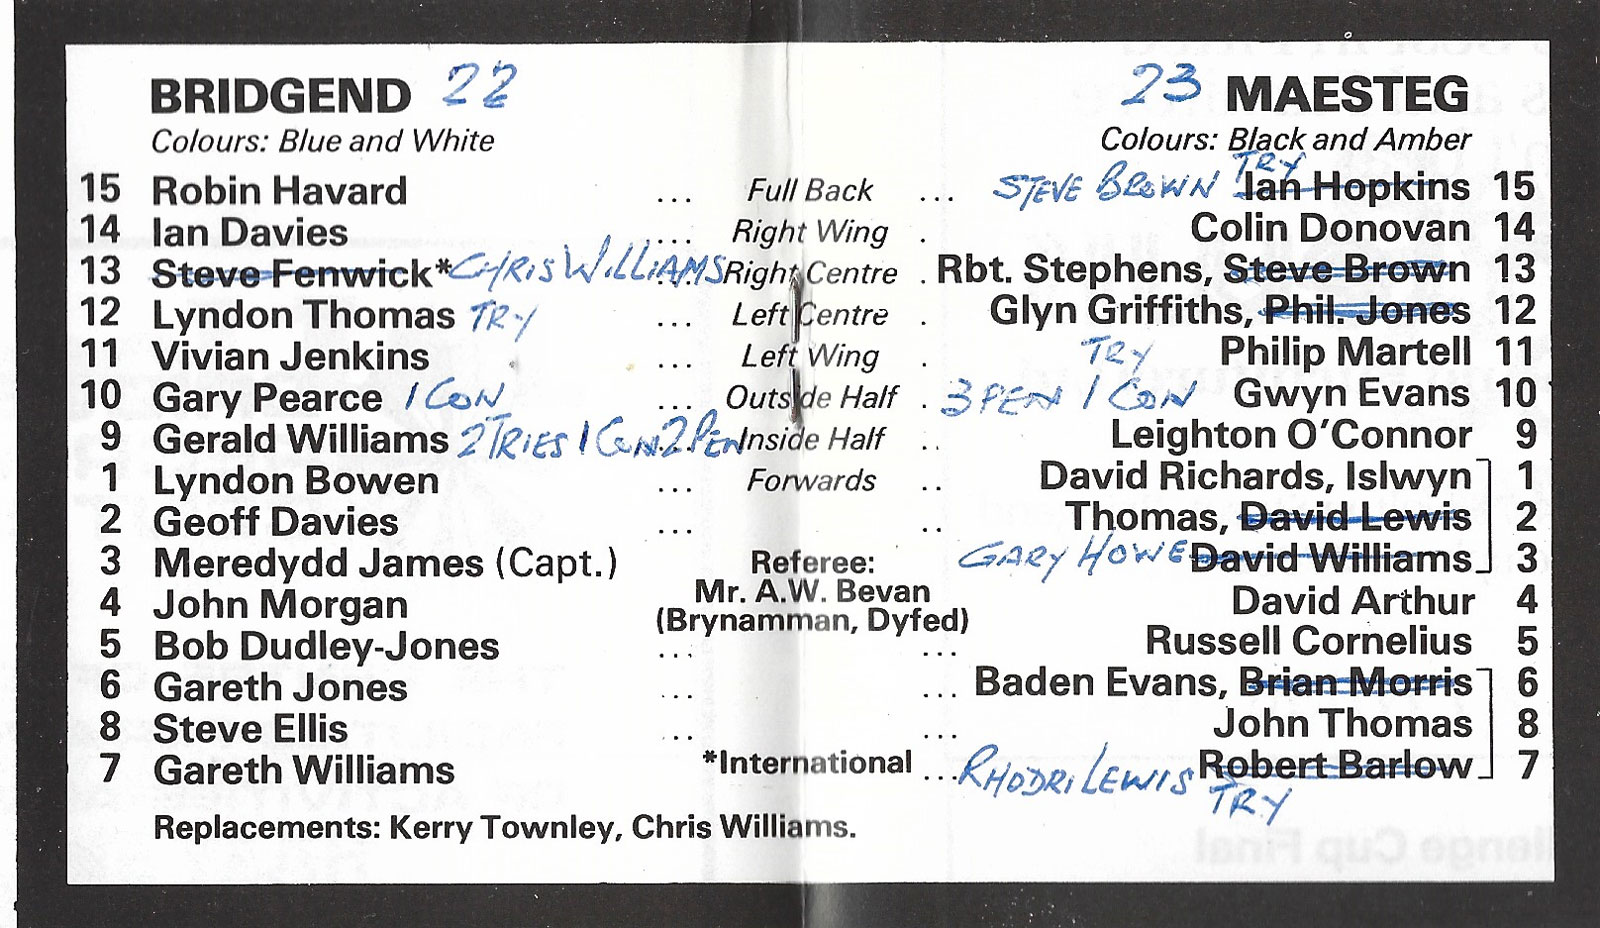 BRIDGEND 22 23 MAESTEG
Colours: Blue and White Colours: Black and Amber
TRY
15 Robin Havard ... Full Back ... STEVE BROWN Ian Hopkins 15
14 Ian Davies ... Right Wing . Colin Donovan 14
13 Steve Fenwick* CHRIS WILLIAMS ... Right Centre . Rbt. Stephens, Steve Brown 13
12 Lyndon Thomas TRY ... Left Centre . Glyn Griffiths, Phil. Jones 12
11 Vivian Jenkins ... Left Wing . TRY Philip Martell 11
10 Gary Pearce 1 CON ... Outside Half . 3 PEN 1 CON Gwyn Evans 10
9 Gerald Williams 2 TRIES 1 CON 2 PEN ... Inside Half .. Leighton O'Connor 9
1 Lyndon Bowen ... Forwards .. David Richards, Islwyn 1
2 Geoff Davies ... .. Thomas, David Lewis 2
3 Meredydd James (Capt.) Referee: GARY HOWE David Williams 3
4 John Morgan Mr. A.W. Bevan David Arthur 4
(Brynamman, Dyfed)
5 Bob Dudley-Jones ... ... Russell Cornelius 5
6 Gareth Jones ... ... Baden Evans, Brian Morris 6
8 Steve Ellis ... ... John Thomas 8
7 Gareth Williams *International ... RHODRI LEWIS Robert Barlow 7
TRY
Replacements: Kerry Townley, Chris Williams.